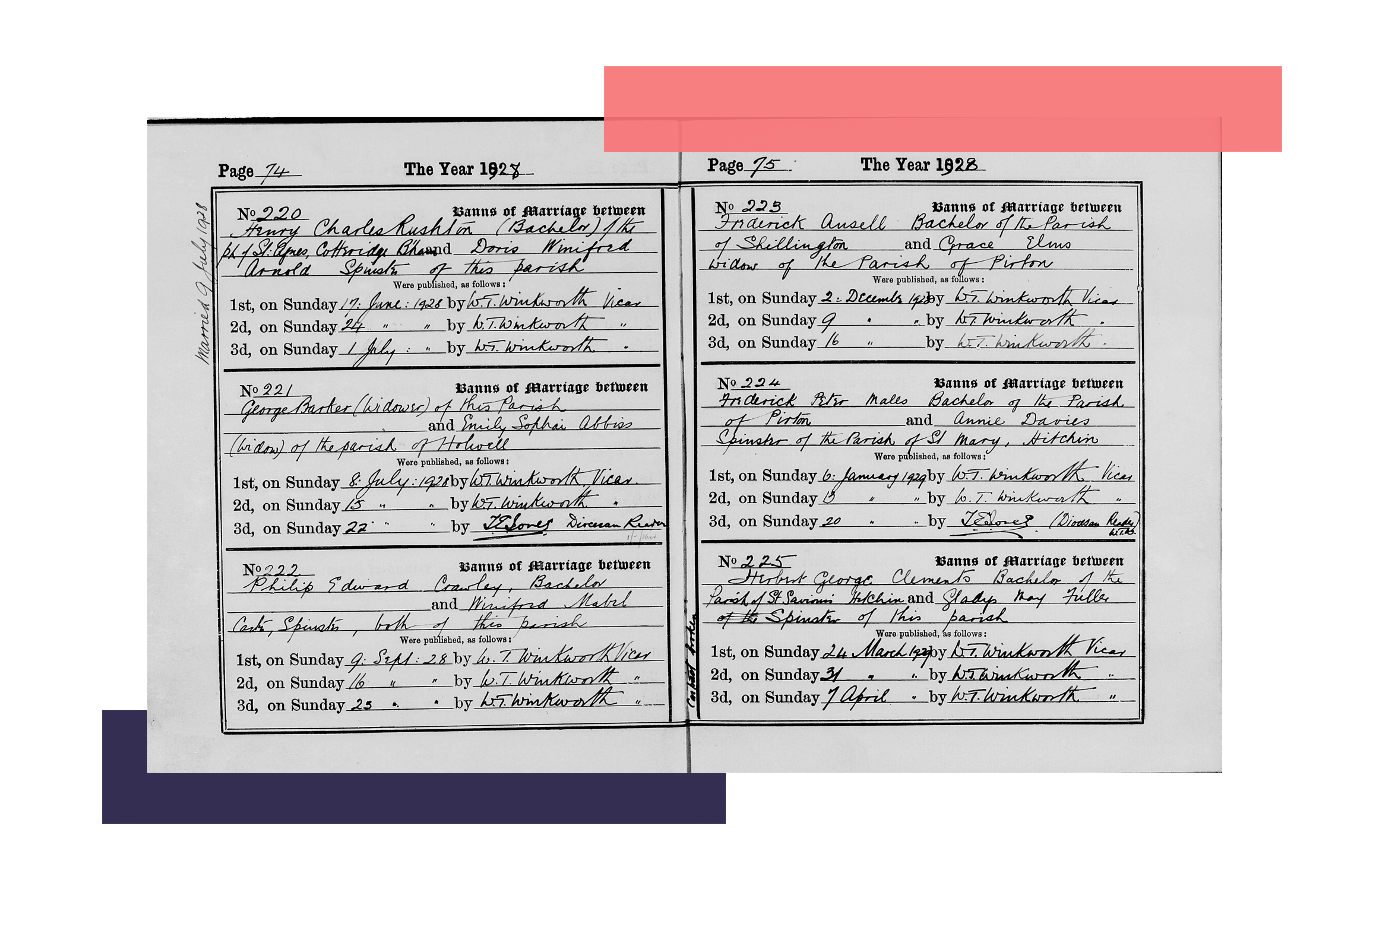 Page 74 The Year 1928
Married 9 July 1928
No 220 Banns of Marriage between
Henry Charles Rushton (Bachelor) of the
ph of St. Agnes, Cotteridge B'ham and Doris Winifred
Arnold Spinster of this parish
Were published, as follows:
1st, on Sunday 17: June: 1928 by W.T. Winkworth Vicar
2d, on Sunday 24 " " by W.T. Winkworth "
3d, on Sunday 1 July: " by W.T. Winkworth "
No 221 Banns of Marriage between
George Barker (Widower) of this Parish
and Emily Sophai Abbiss
(Widow) of the parish of Holwell
Were published, as follows:
1st, on Sunday 8: July: 1928 by W.T. Winkworth, Vicar.
2d, on Sunday 15 " " by W.T. Winkworth "
3d, on Sunday 22 " " by Diocesan Reader
No 222 Banns of Marriage between
Philip Edward Crawley, Bachelor
and Winifred Mabel
Carter, Spinster, both of this parish
Were published, as follows:
1st, on Sunday 9: Sept: 28 by W.T. Winkworth Vicar
2d, on Sunday 16 " " by W.T. Winkworth "
3d, on Sunday 23 " " by W.T. Winkworth "
Page 75 The Year 1928
No 223 Banns of Marriage between
Frederick Ansell Bachelor of the Parish
of Shillington and Grace Elms
Widow of the Parish of Pirton
Were published, as follows:
1st, on Sunday 2: December 1928 by W.T. Winkworth Vicar
2d, on Sunday 9 " " by W.T. Winkworth "
3d, on Sunday 16 " by W.T. Winkworth "
No 224 Banns of Marriage between
Frederick Peter Males Bachelor of the Parish
of Pirton and Annie Davies
Spinster of the Parish of St Mary, Hitchin
Were published, as follows:
1st, on Sunday 6: January 1929 by W.T. Winkworth Vicar
2d, on Sunday 13 " " by W.T. Winkworth "
3d, on Sunday 20 " " by (Diocesan Reader)
No 225 Banns of Marriage between
Herbert George Clements Bachelor of the
Parish of St Saviours Hitchin and Gladys May Fuller
of the Spinster of this parish
Were published, as follows:
1st, on Sunday 24 March 1929 by W.T. Winkworth Vicar
2d, on Sunday 31 " " by W.T. Winkworth "
3d, on Sunday 7 April " by W.T. Winkworth "